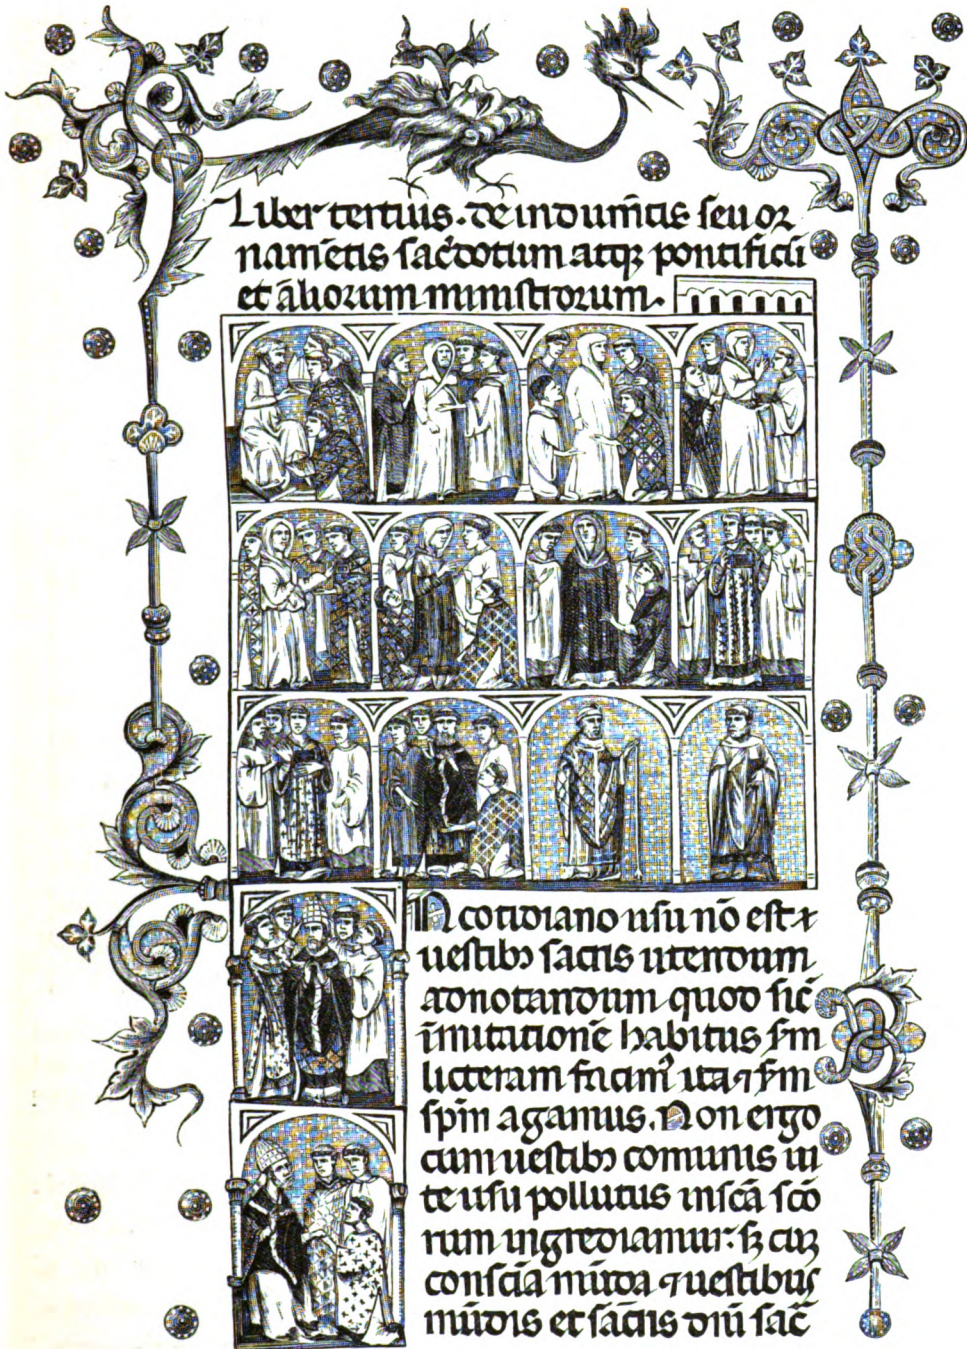 Liber tertius. de indum̄tis seu or
namētis sac̄dotum atqꝫ pontificū
et alioꝛum ministrorum.
IN cotidiano usu nō est ꝛ
uestibꝫ sacris utendum
adnotandum quod sic̄
īmutationē habitus s̄m
litteram facimꝰ ita ⁊ s̄m
spm̄ agamus. Non ergo
cum uestibꝫ comunis ui
te usu pollutus in sc̄ā sc̄o
rum ingrediamur. sꝫ cuꝫ
consciā mūda ⁊ uestibus
mūdis et sac̄is dn̄i sac̄